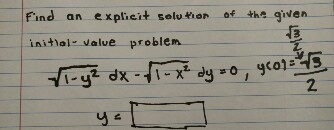 Find an explicit solution of the given
initial-value problem
√3/2
√1-y² dx - √1-x² dy = 0, y(0) = √3/2
y =